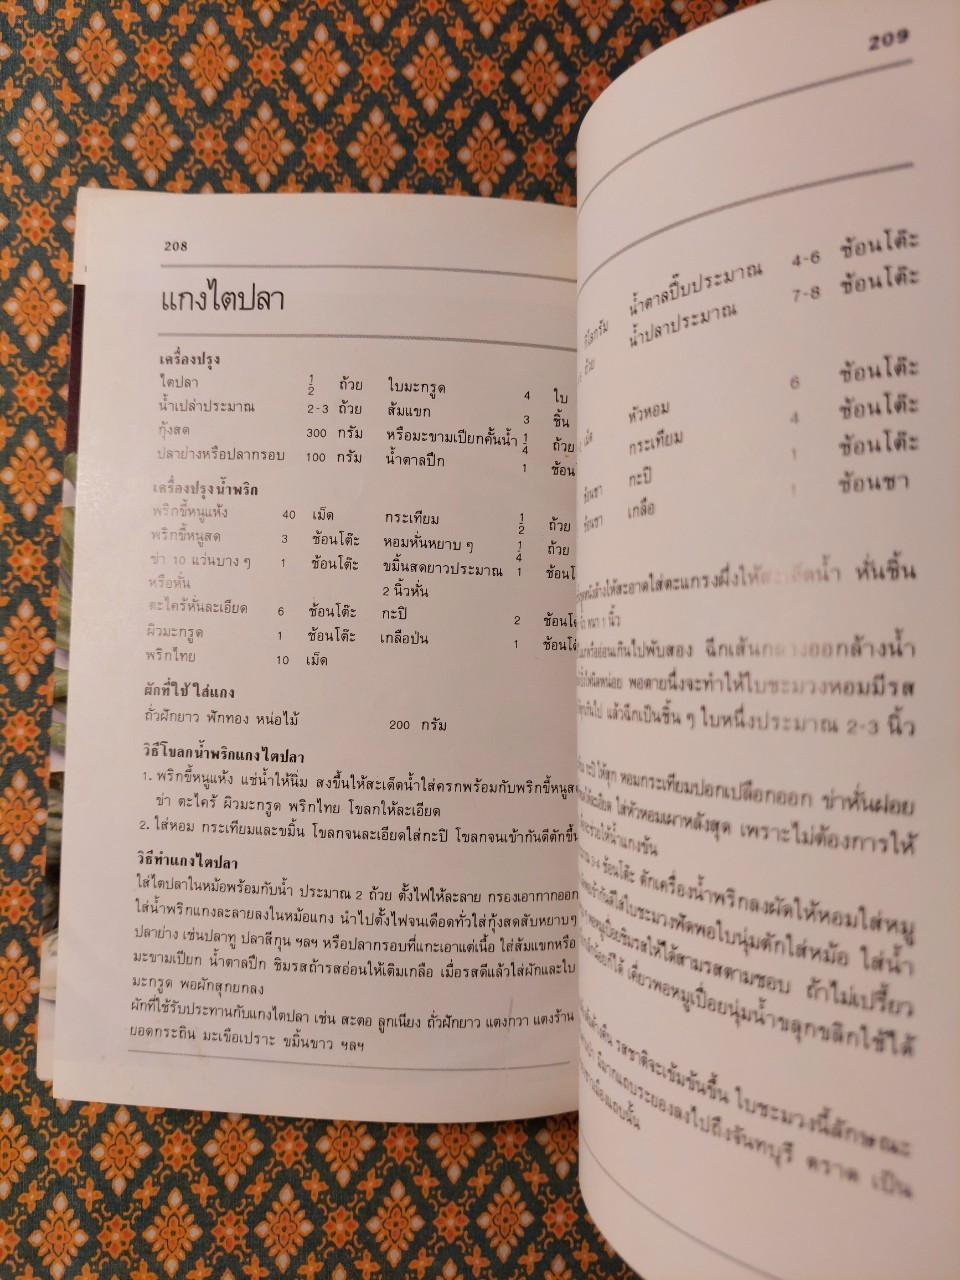 208
แกงไตปลา
เครื่องปรุง
ไตปลา 1/2 ถ้วย ใบมะกรูด 4 ใบ
น้ำเปล่าประมาณ 2-3 ถ้วย ส้มแขก 3 ชิ้น
กุ้งสด 300 กรัม หรือมะขามเปียกคั้นน้ำ 1/4 ถ้วย
ปลาย่างหรือปลากรอบ 100 กรัม น้ำตาลปึก 1 ช้อน
เครื่องปรุงน้ำพริก
พริกขี้หนูแห้ง 40 เม็ด กระเทียม 1/2 ถ้วย
พริกขี้หนูสด 3 ช้อนโต๊ะ หอมหั่นหยาบ ๆ 1/4 ถ้วย
ข่า 10 แว่นบาง ๆ 1 ช้อนโต๊ะ ขมิ้นสดยาวประมาณ 1 ช้อน
หรือหั่น 2 นิ้วหั่น
ตะไคร้หั่นละเอียด 6 ช้อนโต๊ะ กะปิ 2 ช้อน
ผิวมะกรูด 1 ช้อนโต๊ะ เกลือป่น 1 ช้อน
พริกไทย 10 เม็ด
ผักที่ใช้ใส่แกง
ถั่วฝักยาว ฟักทอง หน่อไม้ 200 กรัม
วิธีโขลกน้ำพริกแกงไตปลา
1. พริกขี้หนูแห้ง แช่น้ำให้นิ่ม สงขึ้นให้สะเด็ดน้ำใส่ครกพร้อมกับพริกขี้หนูส
ข่า ตะไคร้ ผิวมะกรูด พริกไทย โขลกให้ละเอียด
2. ใส่หอม กระเทียมและขมิ้น โขลกจนละเอียดใส่กะปิ โขลกจนเข้ากันดีตักขึ้น
วิธีทำแกงไตปลา
ใส่ไตปลาในหม้อพร้อมกับน้ำ ประมาณ 2 ถ้วย ตั้งไฟให้ละลาย กรองเอากากออก
ใส่น้ำพริกแกงละลายลงในหม้อแกง นำไปตั้งไฟจนเดือดทั่วใส่กุ้งสดสับหยาบๆ
ปลาย่าง เช่นปลาทู ปลาสีกุน ฯลฯ หรือปลากรอบที่แกะเอาแต่เนื้อ ใส่ส้มแขกหรือ
มะขามเปียก น้ำตาลปึก ชิมรสถ้ารสอ่อนให้เติมเกลือ เมื่อรสดีแล้วใส่ผักและใบ
มะกรูด พอผักสุกยกลง
ผักที่ใช้รับประทานกับแกงไตปลา เช่น สะตอ ลูกเนียง ถั่วฝักยาว แตงกวา แตงร้าน
ยอดกระถิน มะเขือเปราะ ขมิ้นขาว ฯลฯ
209
กิโลกรัม น้ำตาลปี๊บประมาณ 4-6 ช้อนโต๊ะ
ถ้วย น้ำปลาประมาณ 7-8 ช้อนโต๊ะ
หัวหอม 6 ช้อนโต๊ะ
เม็ด กระเทียม 4 ช้อนโต๊ะ
ช้อนชา กะปิ 1 ช้อนโต๊ะ
ช้อนชา เกลือ 1 ช้อนชา
ล้างให้สะอาดใส่ตะแกรงผึ่งให้สะเด็ดน้ำ หั่นชิ้น
หนา 1 นิ้ว
หรืออ่อนเกินไปพับสอง ฉีกเส้นกลางออกล้างน้ำ
พอตายนึ่งจะทำให้ใบชะมวงหอมมีรส
แล้วฉีกเป็นชิ้น ๆ ใบหนึ่งประมาณ 2-3 นิ้ว
กะปิให้สุก หอมกระเทียมปอกเปลือกออก ข่าหั่นฝอย
ใส่หัวหอมเผาหลังสุด เพราะไม่ต้องการให้
จะช่วยให้น้ำแกงข้น
3-4 ช้อนโต๊ะ ตักเครื่องน้ำพริกลงผัดให้หอมใส่หมู
ใส่ใบชะมวงผัดพอใบนุ่มตักใส่หม้อ ใส่น้ำ
พอหมูเปื่อยชิมรสให้ได้สามรสตามชอบ ถ้าไม่เปรี้ยว
เคี่ยวพอหมูเปื่อยนุ่มน้ำขลุกขลิกใช้ได้
รสชาติจะเข้มข้นขึ้น ใบชะมวงนี้ลักษณะ
มีมากแถบระยองลงไปถึงจันทบุรี ตราด เป็น